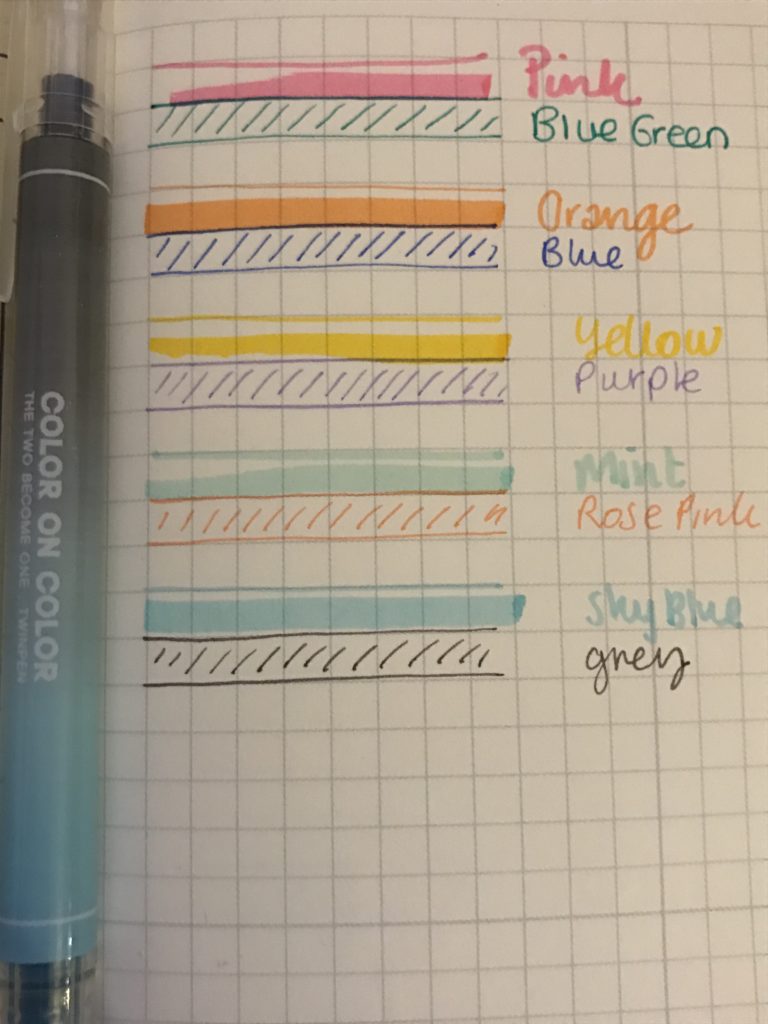 Pink
Blue Green
Orange
Blue
Yellow
Purple
Mint
Rose Pink
Sky Blue
grey
COLOR ON COLOR
THE TWO BECOME ONE. TWINPEN